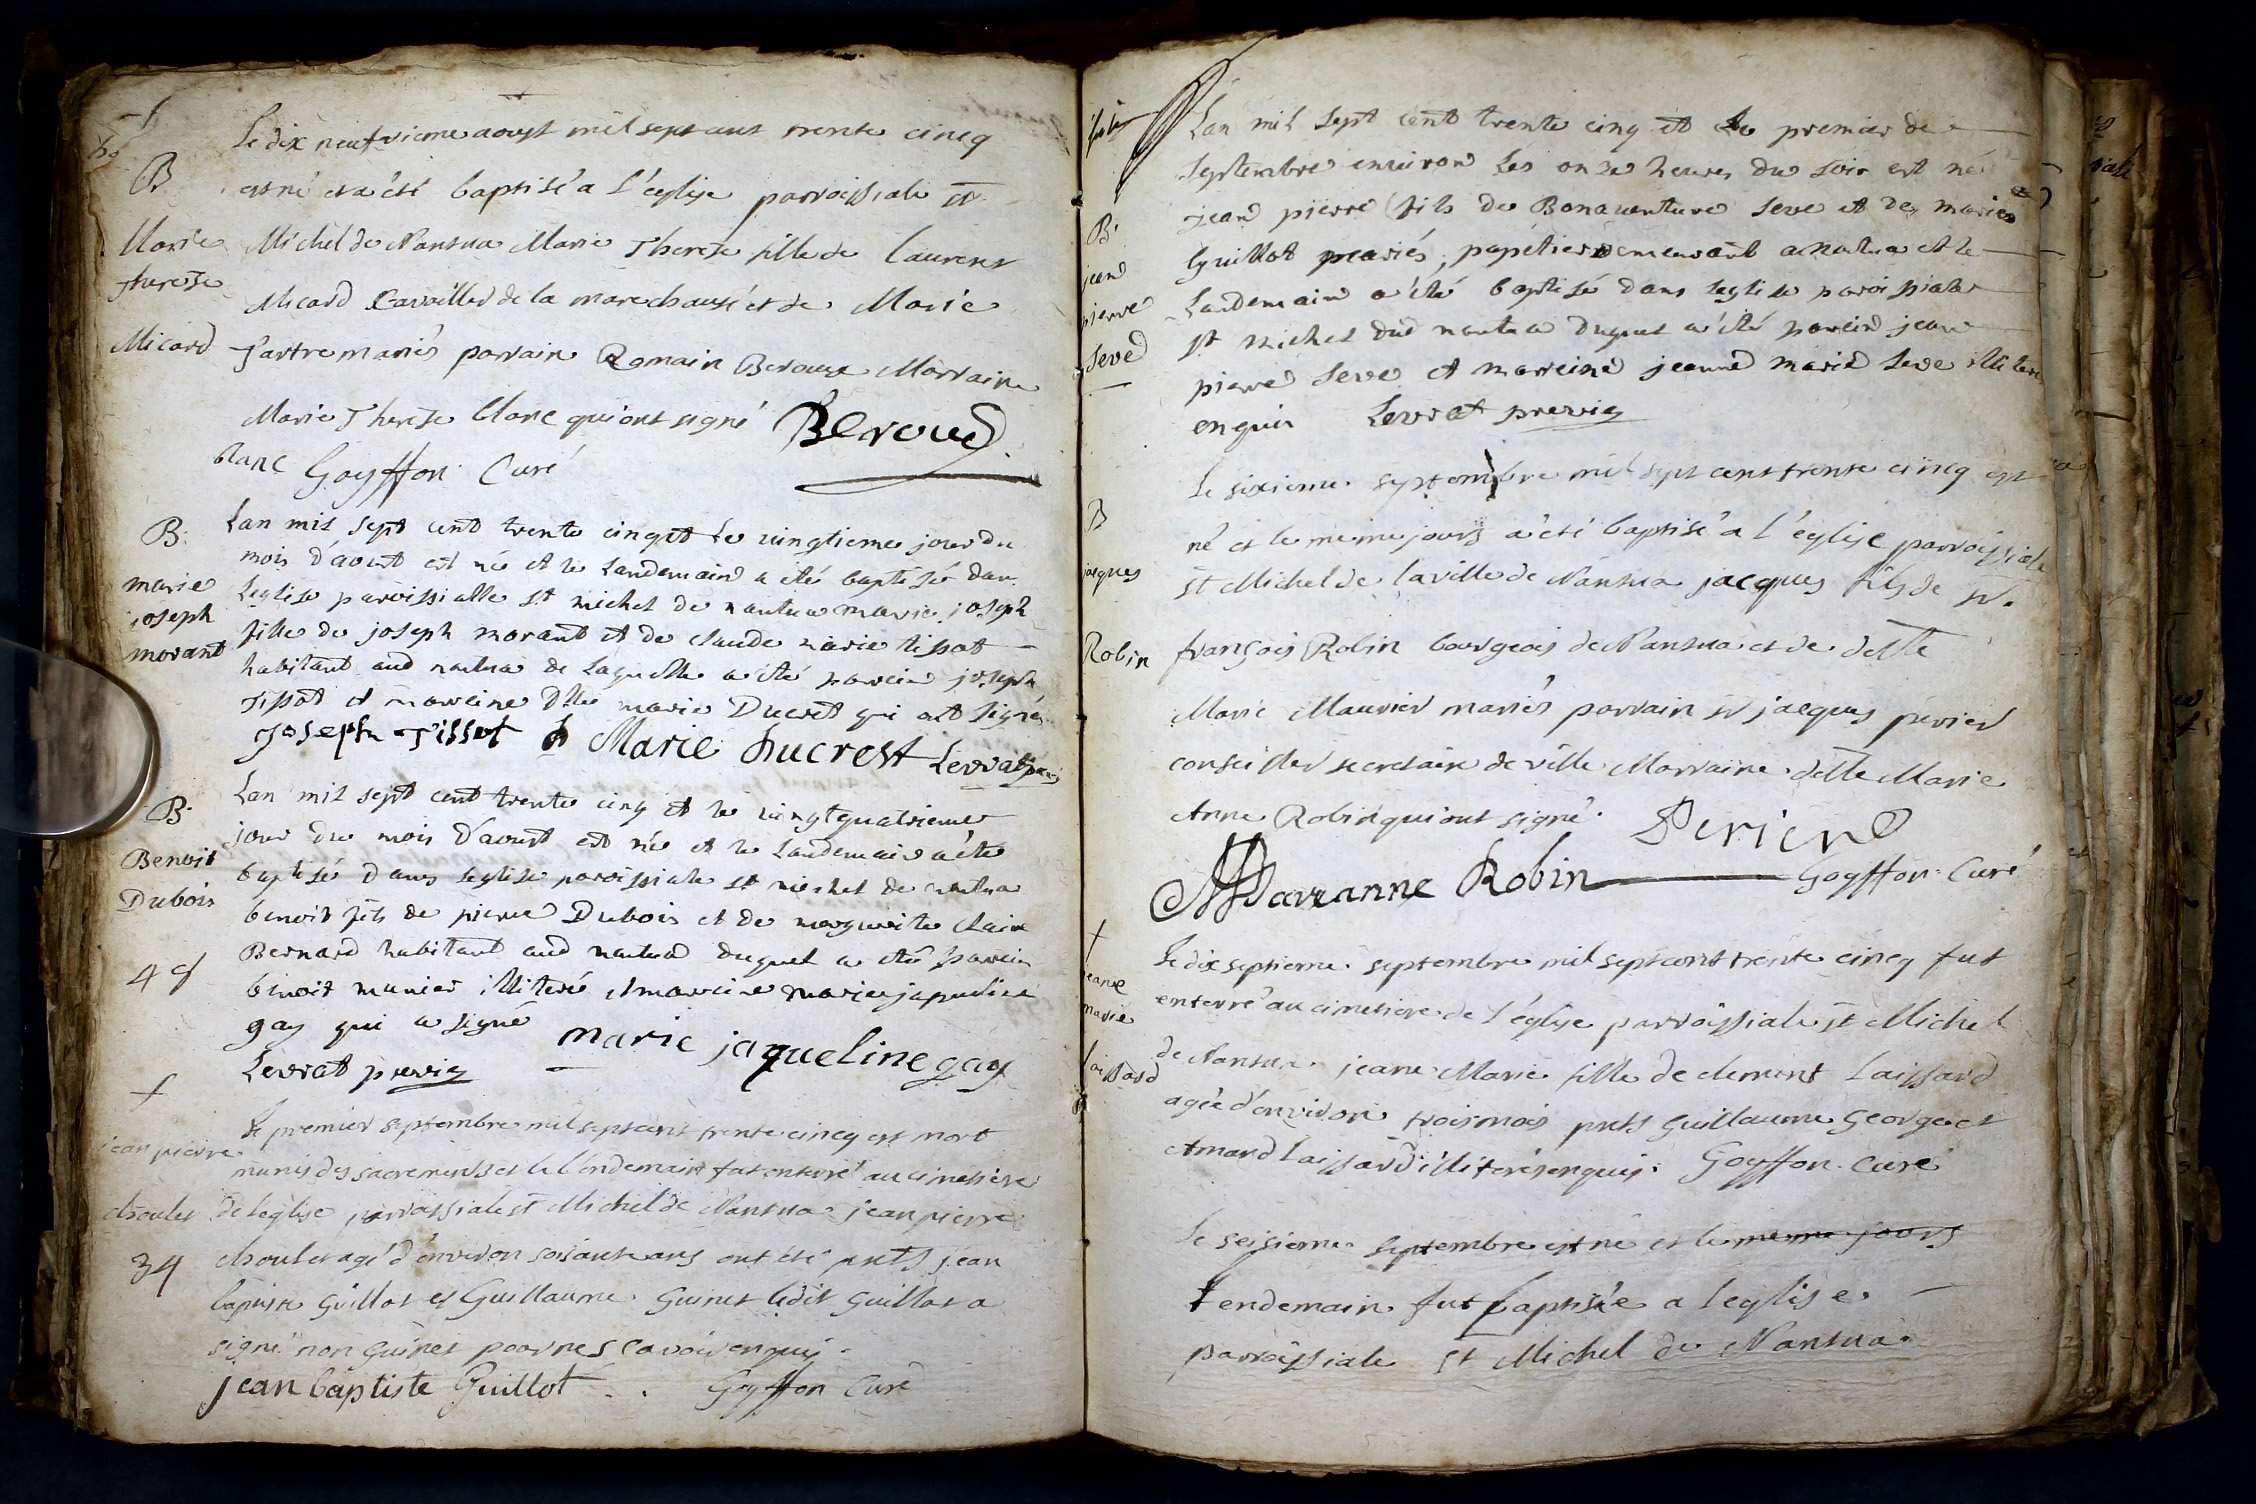 Le dix neufvieme aoust mil sept cent trente cinq
B
est né et a été baptisé a l'eglise parroissiale st
Marie
Michel de Nantua Marie Therese fille de laurent
therese
Micard Cavailler de la marechaussé et de Marie
Micard
mariés parrain Romain Berouse Marraine
Marie Therese blanc qui ont signé Beroud
blanc Goyffon Curé
B.
Lan mil sept cent trente cinq et le vingtieme jour du
mois d'aoust est née et le landemain a été baptisée dans
marie
Leglise paroissialle st michel de nantua marie joseph
joseph
fille de joseph morant et de claude marie tissot
morant
habitant aud nantua de laquelle a été parein joseph
Tissot et mareine Dlle marie Ducret qui ont signés
joseph Tissot Marie Ducrest Levrat
B.
Lan mil sept cent trente cinq et le vingtquatrieme
jour du mois d'aoust est née et le landemain a été
Benoit
baptisé dans leglise paroissiale st michel de nantua
Dubois
benoit fils de pierre Dubois et de marguerite claire
Bernard habitant aud nantua duquel a été parein
4 9
benoit munier illiteré et mareine marie jaqueline
gay qui a signé marie jaqueline gay
Levrat previc
Le premier septembre mil sept cent trente cinq est mort
jean pierre
munis des sacrements et le l'endemain fut enterré au cimetiere
choulet
de l'eglise parroissiale st Michel de Nantua jean pierre
34
choulet agé d'environ soisante ans ont été pnts jean
baptiste Guillot et Guillaume Guinet ledit Guillot a
signé non Guinet pour ne scavoir enquis.
jean baptiste Guillot . . Goyffon Curé
Lan mil sept cent trente cinq et le premier de
Septembre environ les onze heures du soir est né
B.
jean pierre fils de Bonaventure Seve et de marie
jean
Guillot mariés, papetier demeurant a natua et le
pierre
Landemain a été baptisé dans leglise paroissiale
Seve
st michel dud nantua duquel a été parein jean
pierre Seve et mareine jeanne marie Seve
enquis Levrat previc
Le sixieme septembre mil sept cent trente cinq est
B
né et le meme jours a été baptisé a l'église parroissiale
jacques
st Michel de la ville de Nantua jacques fils de sr.
Robin
françois Robin bourgeois de Nantua et de delle
Marie Maurier mariés parrain sr jacques perier
conseiller secretaire de ville Marraine delle Marie
Anne Robin qui ont signé. Perier
Marianne Robin Goyffon Curé
Le dix septieme septembre mil sept cent trente cinq fut
jeane
enterré au cimetiere de l'église parroissiale st Michel
marie
de Nantua jeane Marie fille de clement Laissard
laissard
agée d'environ trois mois pnts Guillaume George et
Amand Laissard illiterés enquis. Goyffon. Curé
Le seisieme septembre est né et le meme jours
lendemain fut baptisée a leglise
parroissiale st Michel de Nantua.